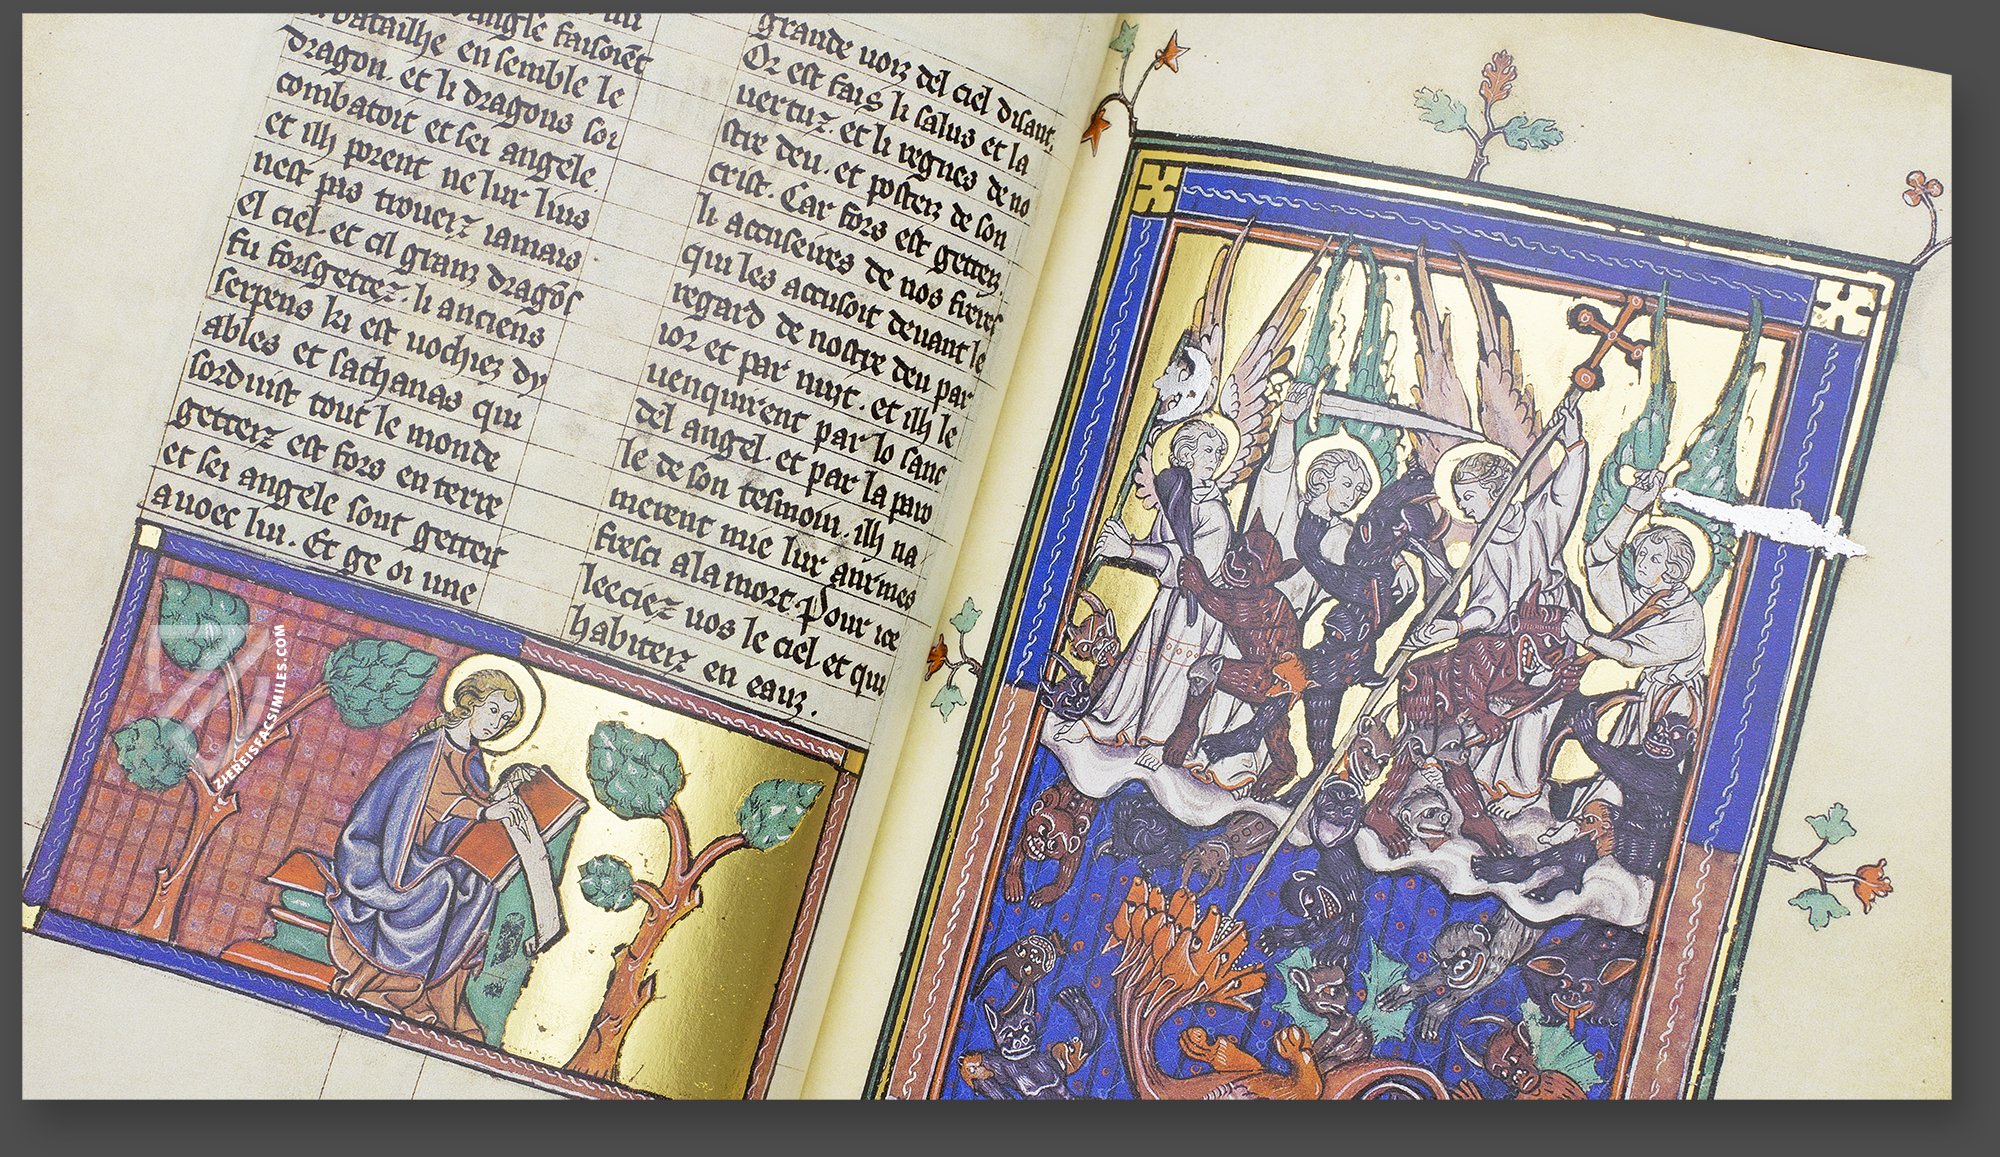 batailhe en semble le
dragon. et li dragons soi
combatoit et sei angele.
et ilh porent ne lur lius
nest pas troueiz iamais
el ciel. et cil granz dragōs
fu forsgettez. li anciens
serpens ki est uochiez dy
ables et sathanas qui
sorduist tout le monde
getteiz est fors en terre
et sei angele sont getteit
auoec lui. Et ge oi une
grande uoiz del ciel disant.
Or est fais li salus et la
uertuz. et li regnes de no
stre deu. et posteiz de son
crist. Car fors est getteiz
li accuseires de nos freires
qui les accusoit deuant le
regard de nostre deu par
ior et par nuyt. et ilh le
uenquirent par lo sanc
del angel. et par la paro
le de son tesmoin. ilh na
merent mie lur airmes
fresci a la mort. Pour ice
leeciez uos le ciel et qui
habiteiz en eauz.
ZIEREISFACSIMILES.COM